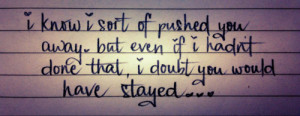 i know i sort of pushed you
away. but even if i hadn't
done that, i doubt you would
have stayed...